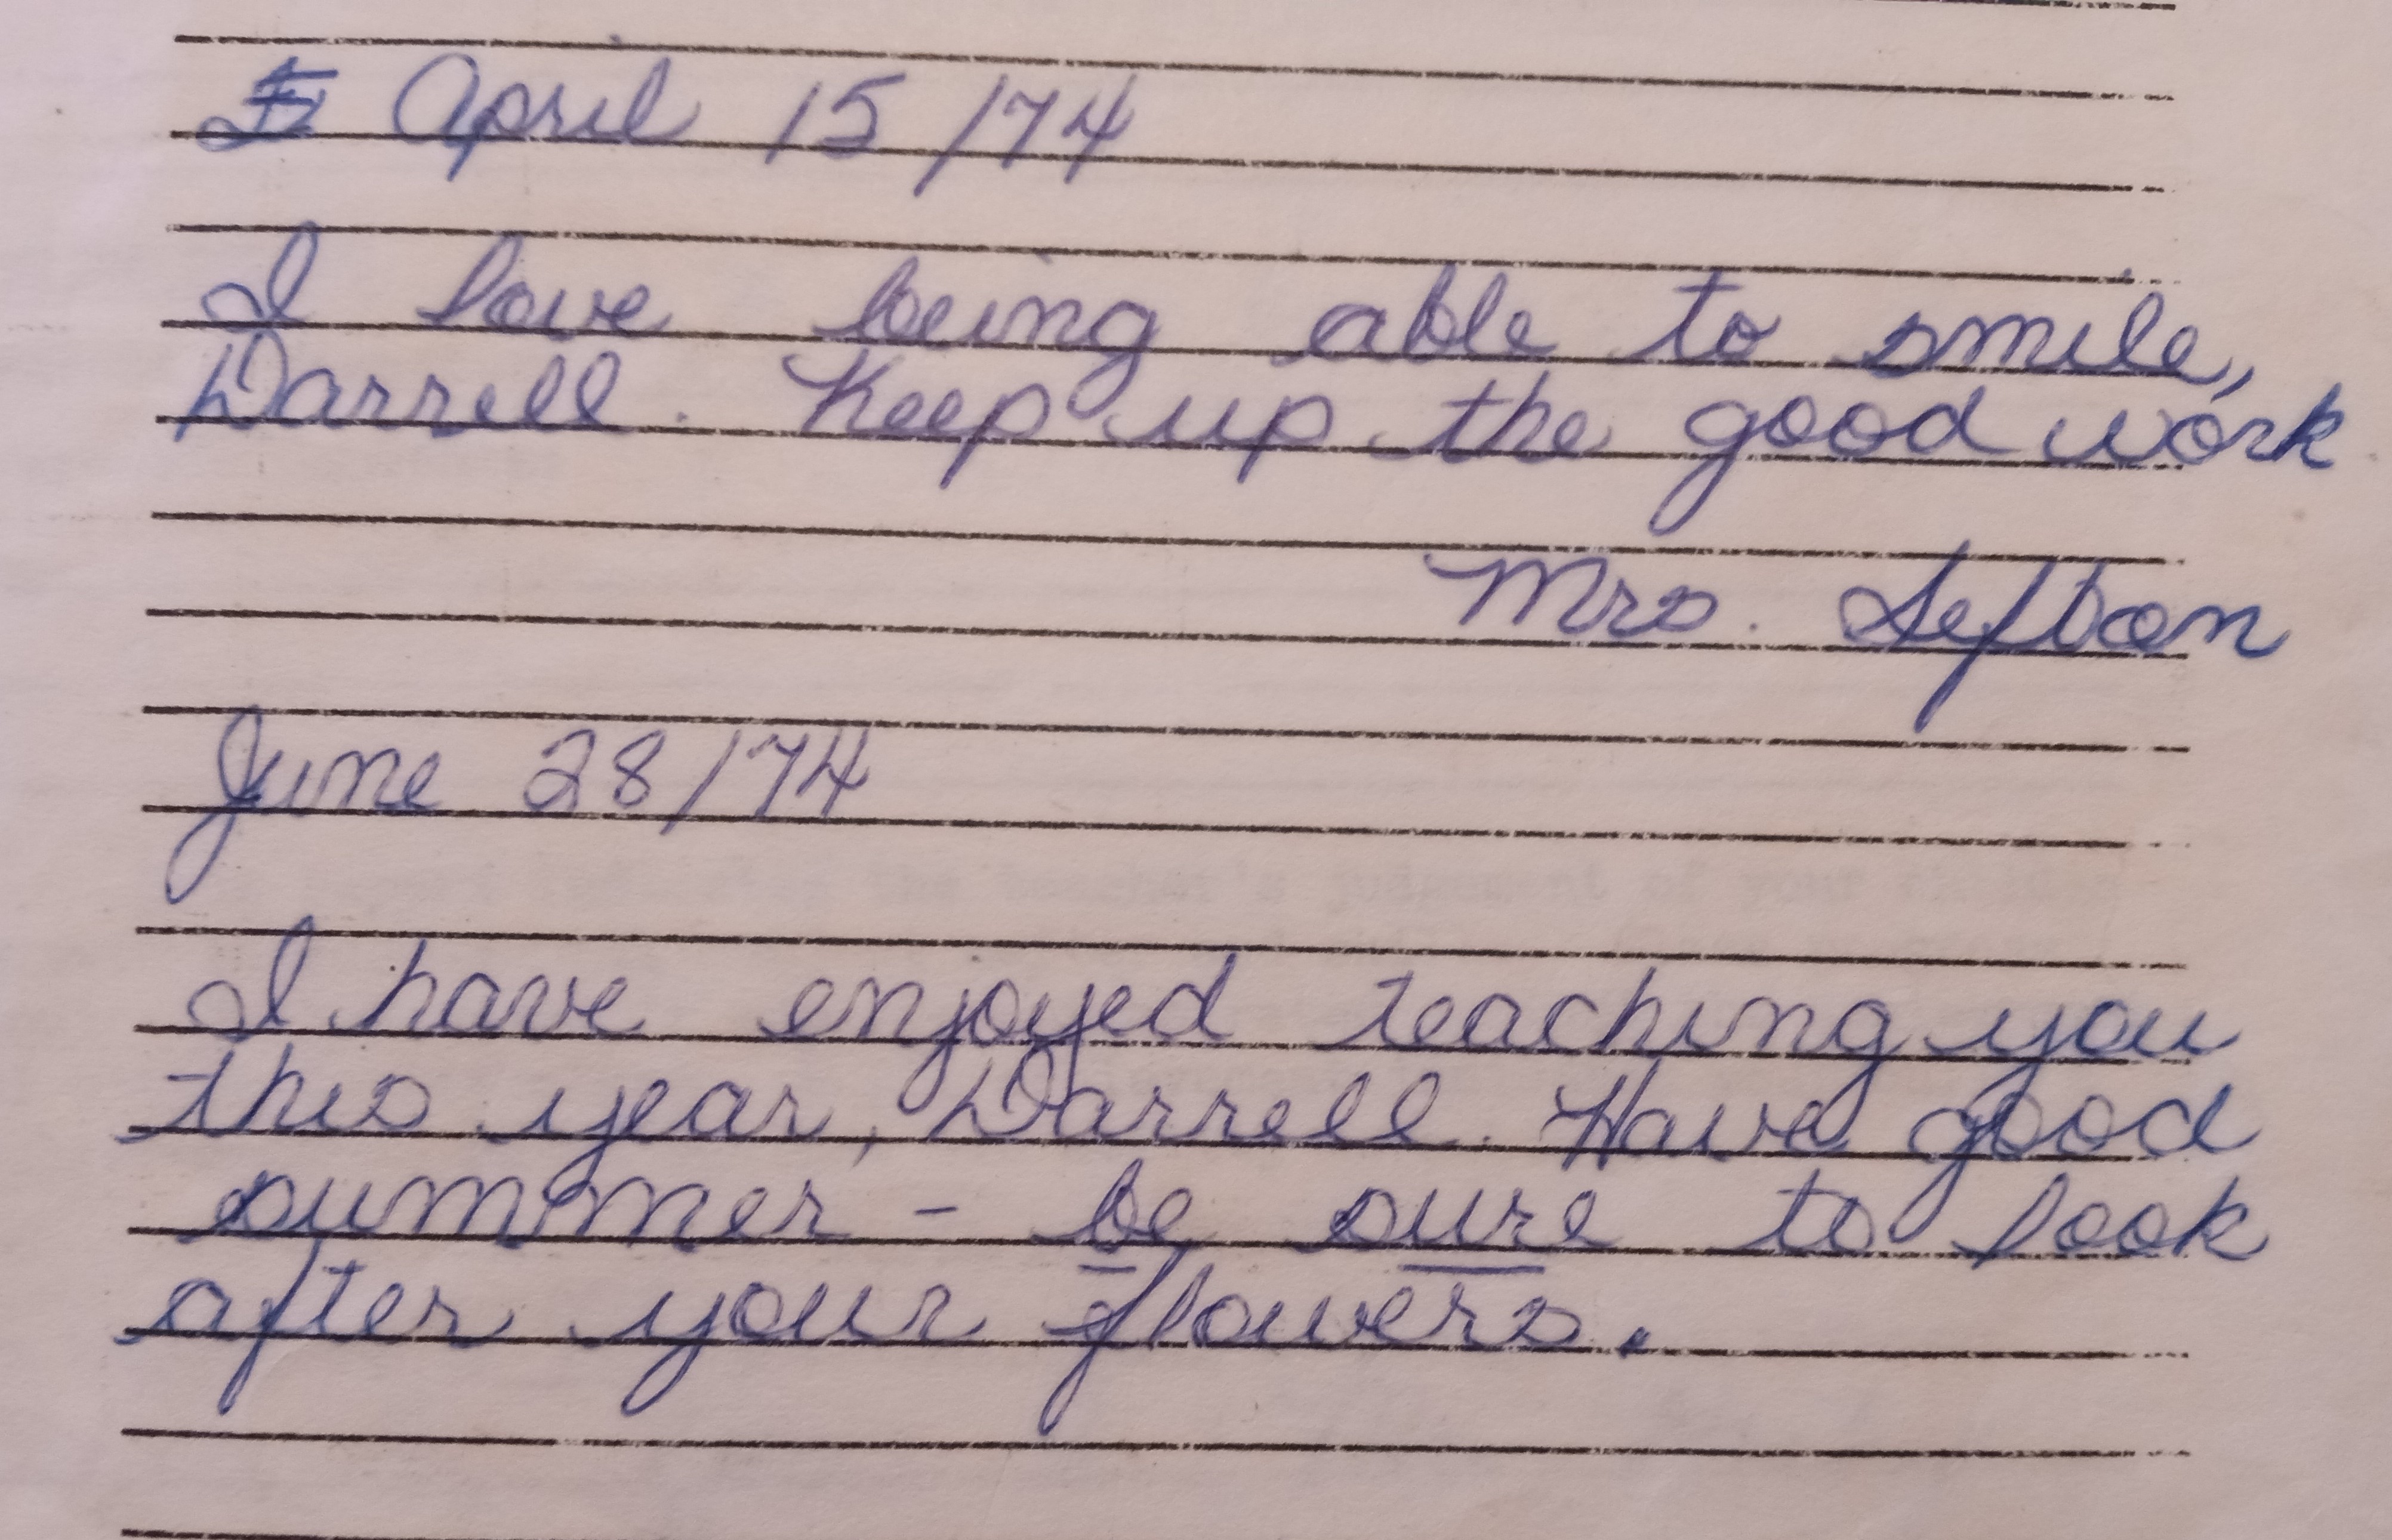 April 15/74
I love being able to smile,
Darrell. Keep up the good work
Mrs. Sefton
June 28/74
I have enjoyed teaching you
this year, Darrell. Have good
summer - be sure to look
after your flowers.